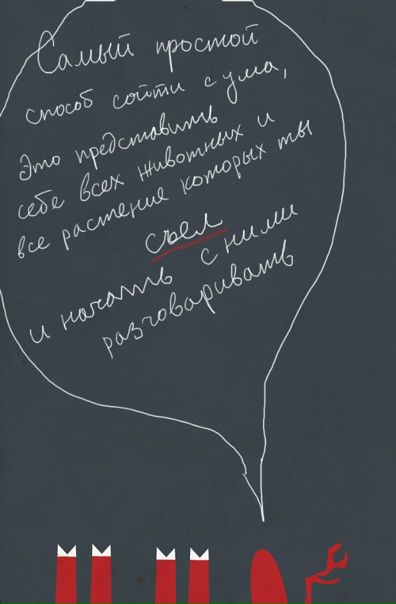 Самый простой
способ сойти с ума,
Это представить
себе всех животных и
все растение которых ты
съел
и начать с ними
разговаривать